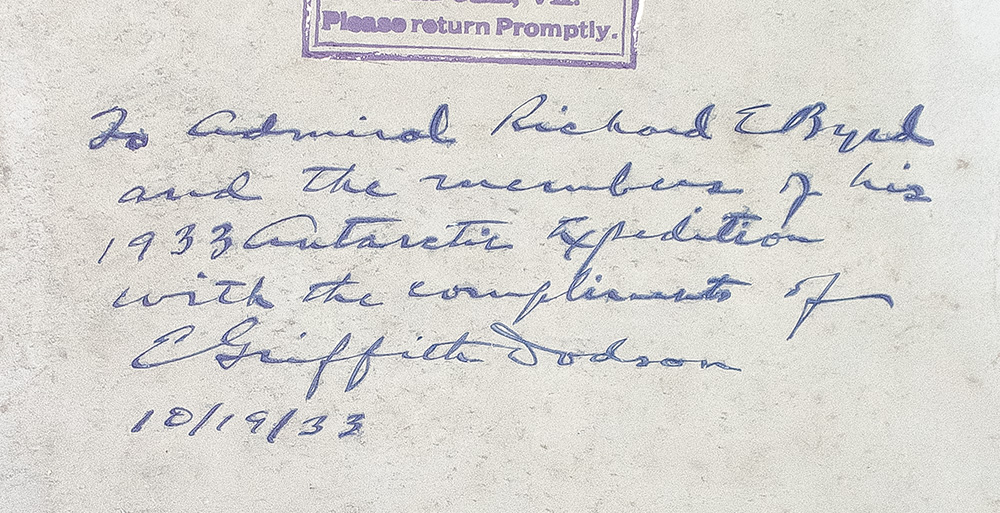 Please return Promptly.
To Admiral Richard E Byrd
and the members of his
1933 Antarctic Expedition
with the compliments of
E Griffith Dodson
10/19/33